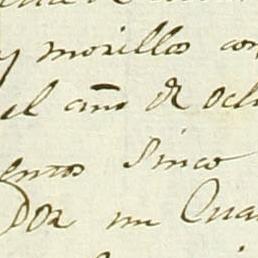 y morillos con
el año de och
entos sinco
Por un Qua